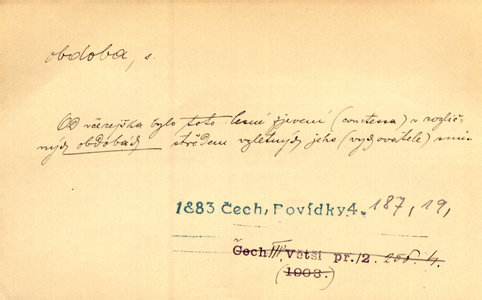 obdoba, s.
Od včerejška bylo toto lesní zjevení (contessa) v rozlič-
ných obdobách středem vzletných jeho (vychovatele) snů
1883 Čech, Povídky 4. 187, 19,
Čech III. Větší pr./2. 206. 4.
(1903.)